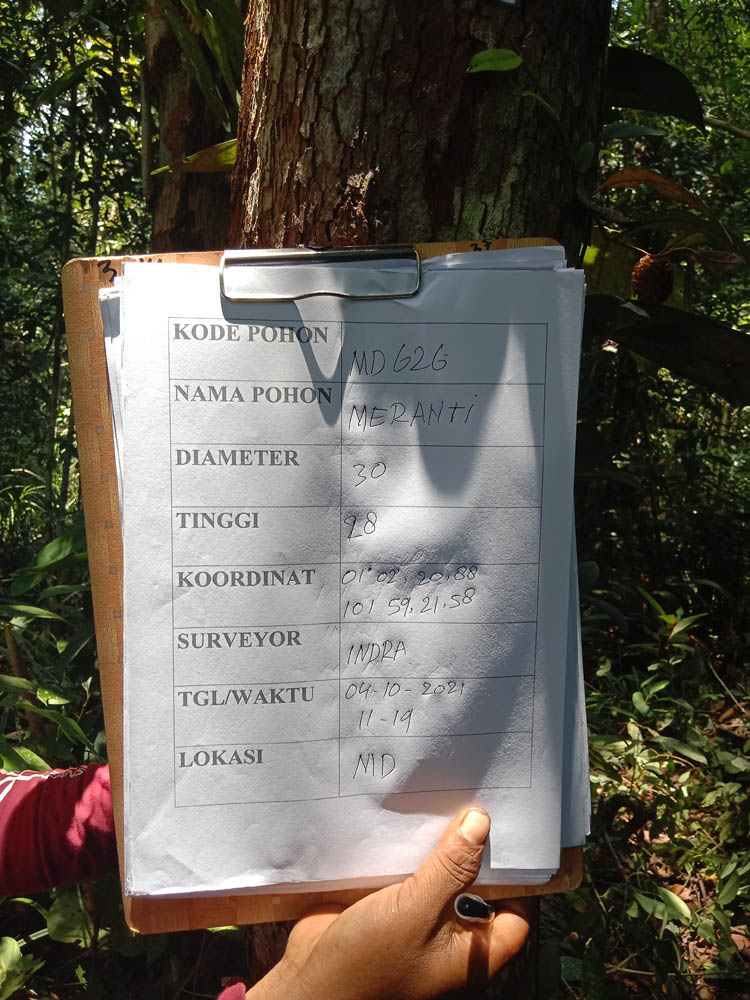 KODE POHON MD 626
NAMA POHON MERANTi
DIAMETER 30
TINGGI 28
KOORDINAT 01° 02', 20,88
101 59, 21, 58
SURVEYOR INDRA
TGL/WAKTU 04-10-2021
11-19
LOKASI MD